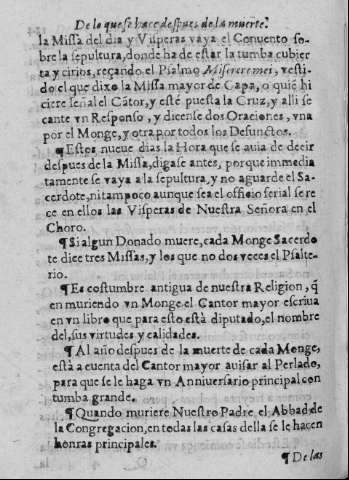 De lo que se haze despues de la muerte.
la Missa del dia y Visperas vaya el Conuento so-
bre la sepultura, donde ha de estar la tumba cubier
ta y cirios, reçando el Psalmo Misereremei, vesti-
do el que dixo la Missa mayor de Capa, o quiẽ hi
ciere señal el Cãtor, y estè puesta la Cruz, y alli se
cante vn Responso, y dicense dos Oraciones, vna
por el Monge, y otra por todos los Defunctos.
¶Estos nueue dias la Hora que se auia de decir
despues de la Missa, digase antes, porque immedia
tamente se vaya a la sepultura, y no aguarde el Sa-
cerdote, ni tampoco aunque sea el officio ferial se re
ce en ellos las Visperas de Nuestra Señora en el
Choro.
¶Si algun Donado muere, cada Monge Sacerdo
te dice tres Missas, y los que no dos veces el Psalte-
rio.
¶Es costumbre antigua de nuestra Religion, q̃
en muriendo vn Monge el Cantor mayor escriua
en vn libro que para esto està diputado, el nombre
del, sus virtudes y calidades.
¶Al año despues de la muerte de cada Monge,
està a cuenta del Cantor mayor auisar al Perlado,
para que se le haga vn Anniuersario principal con
tumba grande.
¶Quando muriere Nuestro Padre el Abbad de
la Congregacion, en todas las casas della se le hacen
honras principales.
¶De las